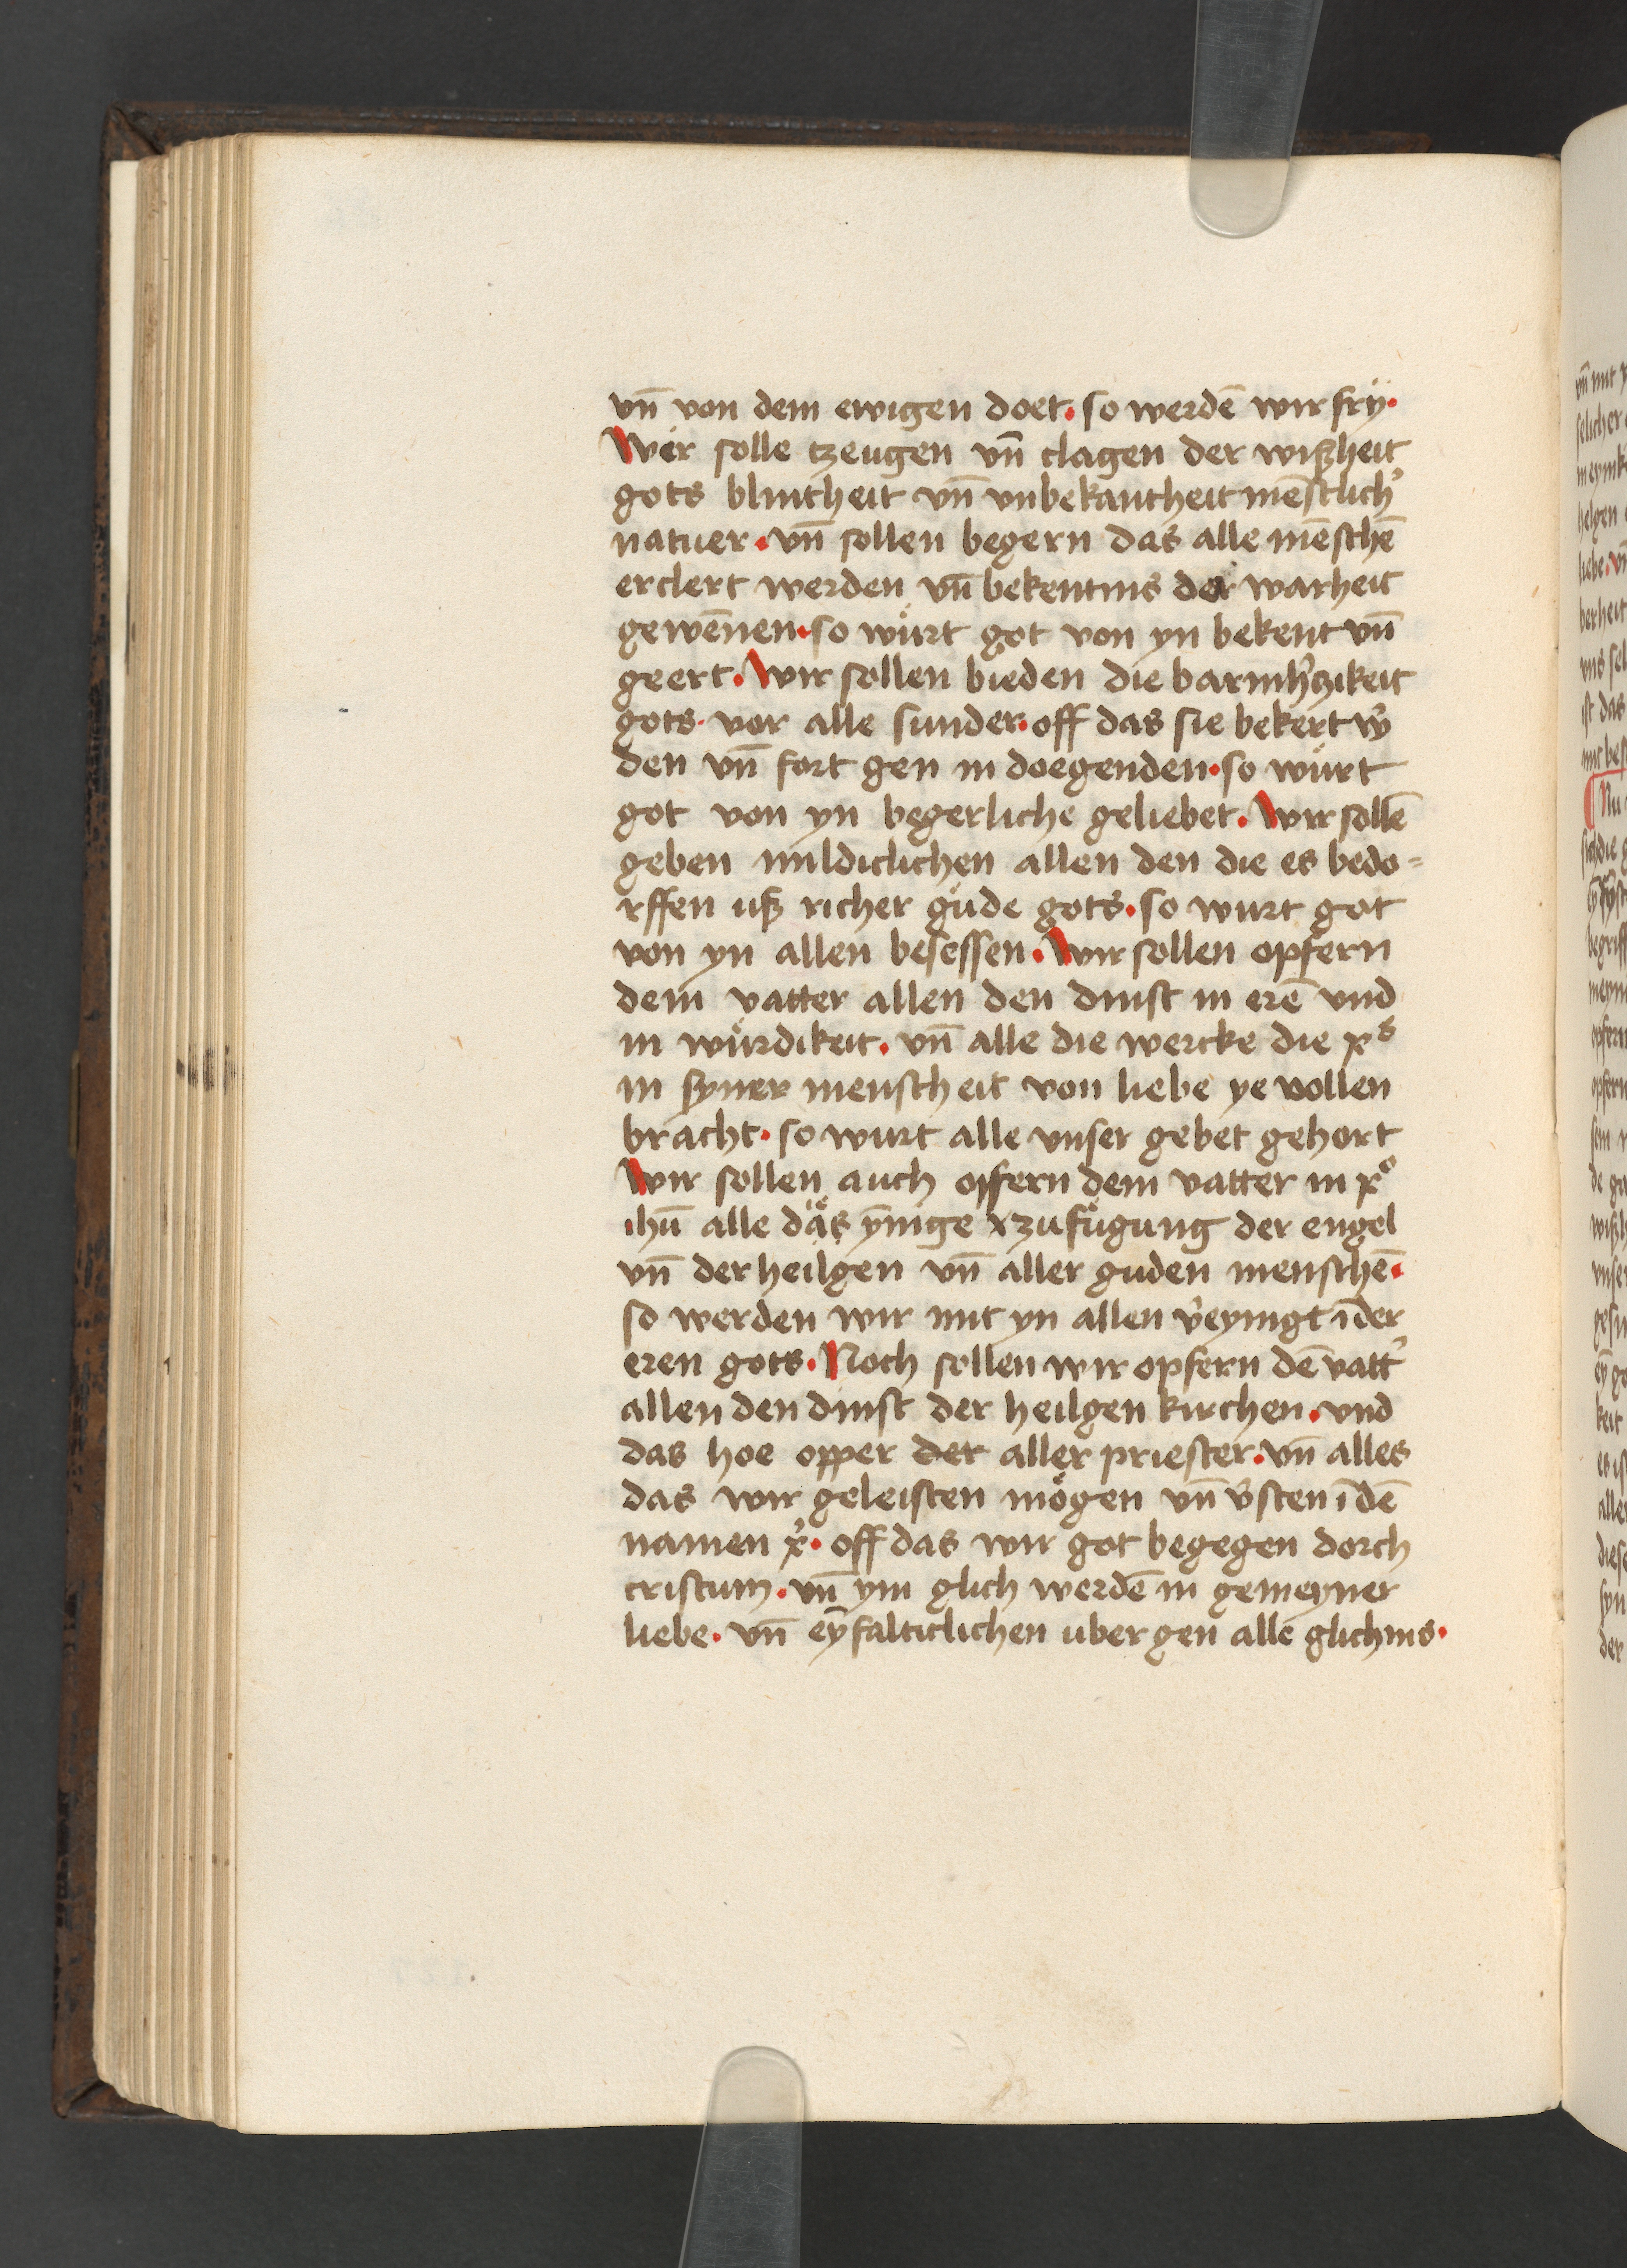 vn̄ von dem ewigen doet · so werdē wir frÿ ·
Wer solle tzeugen vn̄ clagen der wißheit
gots blintheit vn̄ vnbekantheit mēstlich᾽
natuer · vn̄ sollen begern das alle mēschē
erclert werden vn̄ bekentnis der warheit
gewēnen · so wu̇rt got von yn bekent vn̄
geert · Wir sollen bieden die barmh᾽tzikeit
gots · vor alle sunder · off das sie bekert w᾽
den vn̄ fort gen in doegenden · so wu̇rt
got von yn begerliche geliebet · Wir sollē
geben mildiclichen allen den die es bedo=
rffen uß richer gu̇de gots · so wurt got
von yn allen besessen · Wir sollen opfern
dem vatter allen den dinst in erē vnd
in wu̇rdikeit · vn̄ alle die wercke die xͫs
in syner menscheit von liebe ye vollen
bracht · so wurt alle vnser gebet gehort
Wir sollen auch opfern dem vatter in xͦ
ihū alle das ȳnige zufu̇gung der engel
vn̄ der heilgen vn̄ aller guden menschē ·
so werden wir mit yn allen v᾽eynigt ī der
eren gots · Noch sollen wir opfern dē vatt᾽
allen den dinst der heilgen kirchen · vnd
das hoe opper der aller priester · vn̄ alles
das wir geleisten mögen vn̄ v᾽sten ī dē
namen x᾽ · off das wir got begegen dorch
cristum · vn̄ ym glich werdē in gemeyner
liebe · vn̄ eȳfalticlichen uber gen alle glichnis ·